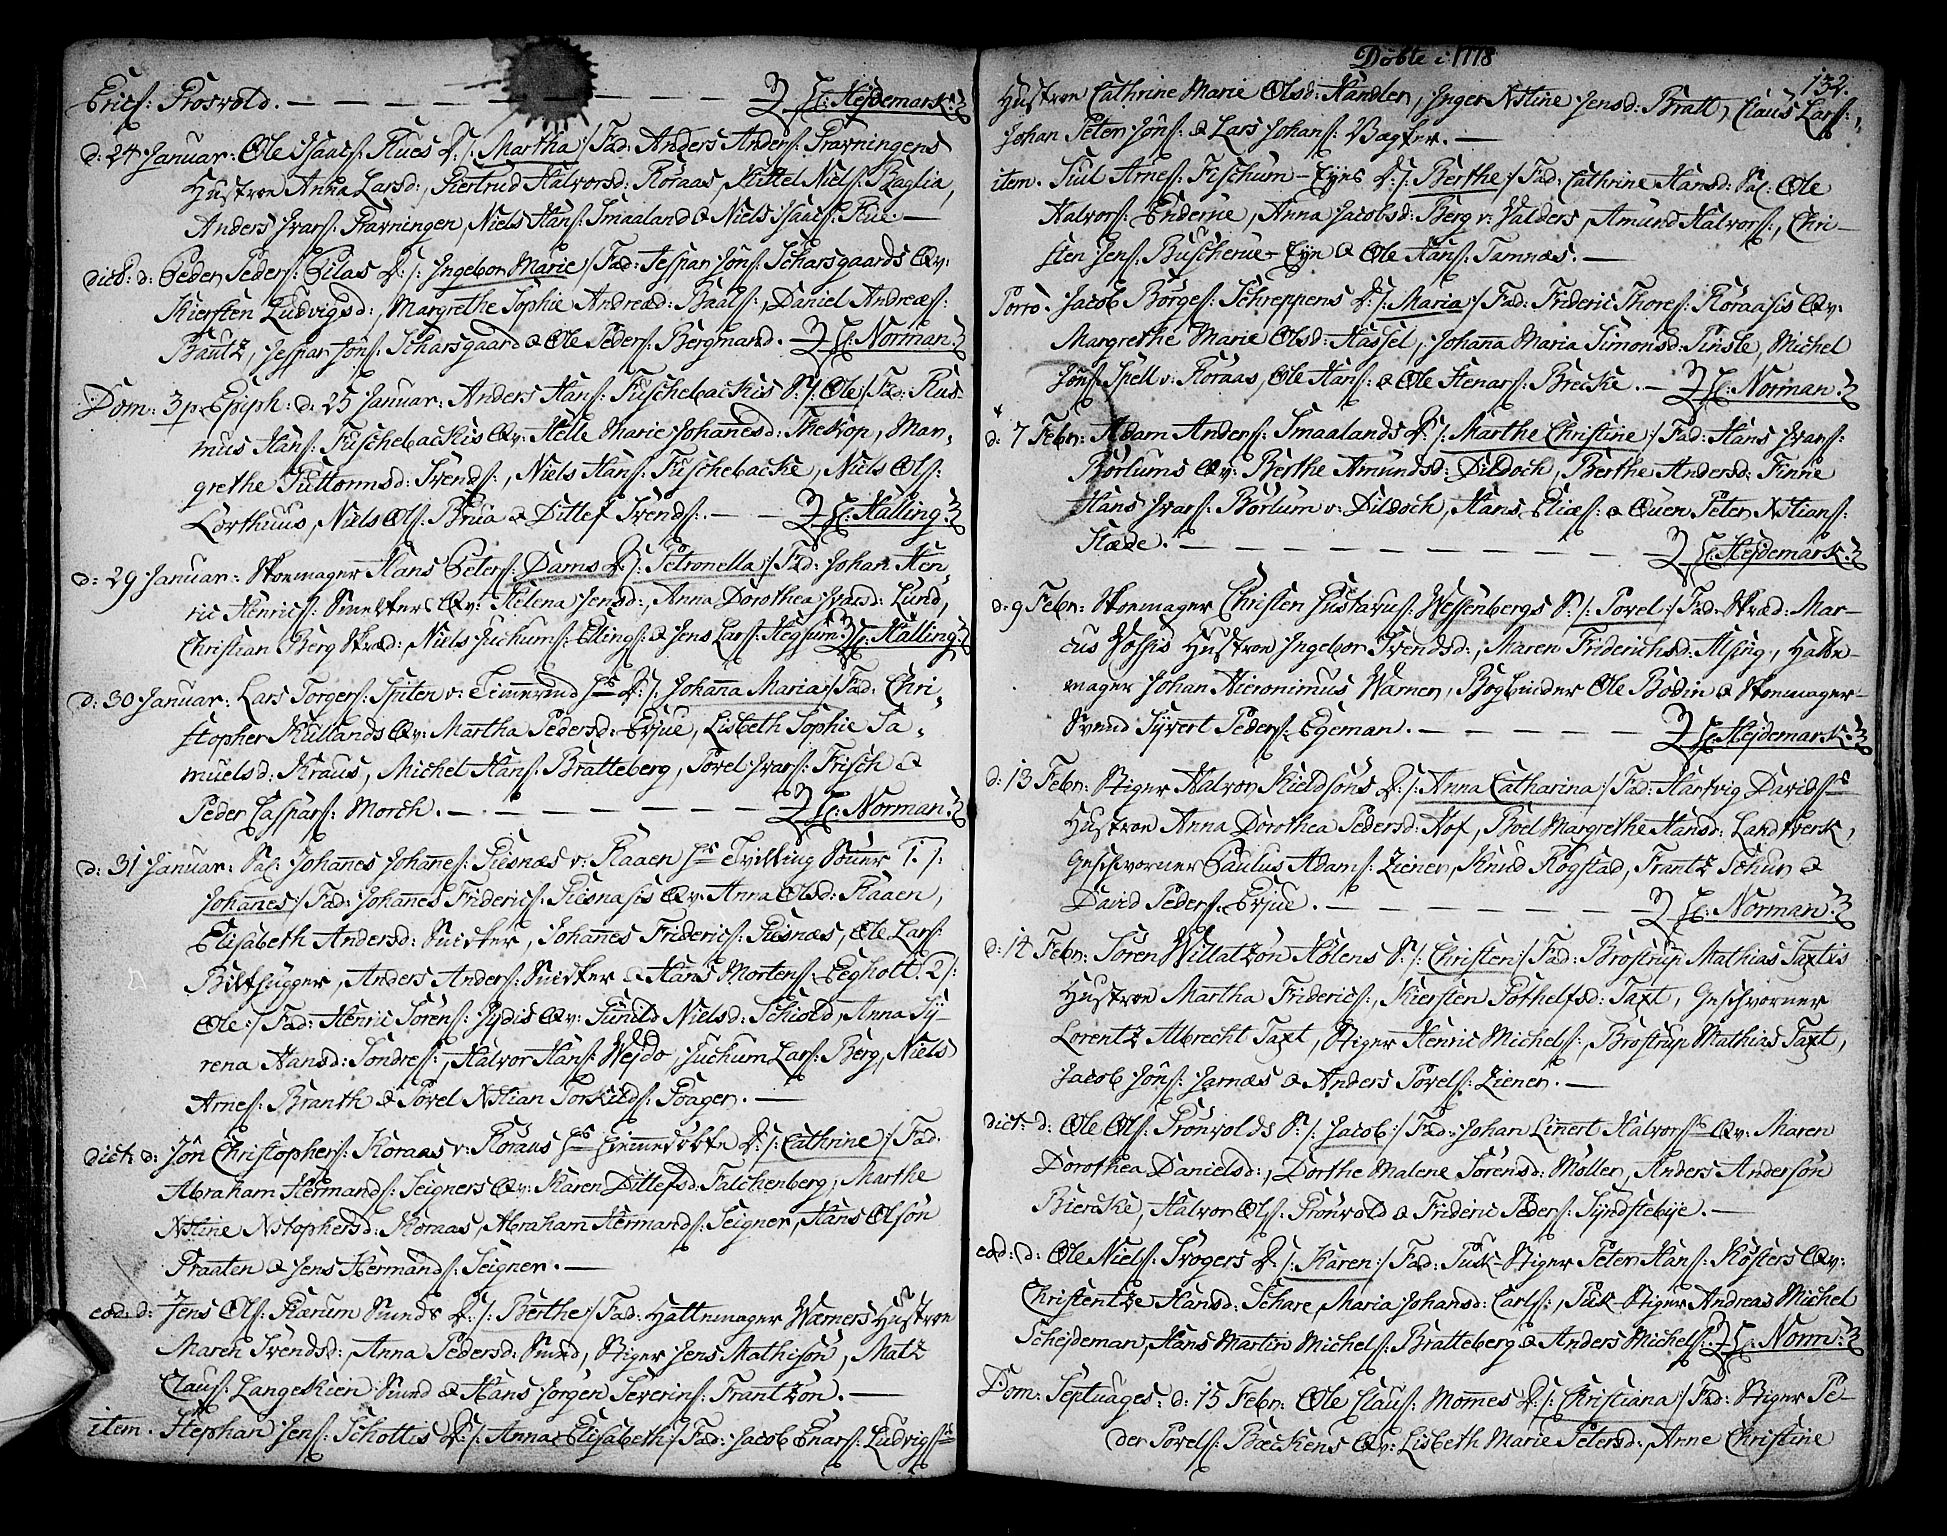 Erics: Prosvold. — — — — — — — H: Hejdemark.
d: 24 Januar: Ole Isaacs: Rues D. /: Martha :/ Fad: Anders Anders: Pravningens
Hustroe Anna Larsd:, Giertrud Halvorsd: Roraas, Kittel Niels: Baglia,
Anders Ivars: Pravningen, Niels Hans: Smaaland & Niels Isaacs: Rue. —
dict: d: Peder Peders: Pilas D. /: Ingebor Marie :/ Fad: Jespar Jöns: Scharsgaards Qv:
Kiersten Ludvigsd:, Margrethe Sophie Andreæd: Baals:, Daniel Andreæs:
Bautz, Jespar Jöns: Scharsgaard & Ole Peders: Bergmand. — H: Norman.
Dom: 3 p. Epiph: d. 25 Januar: Anders Hans: Fischebackis S. /: Ole :/ Fad: Ras-
mus Hans: Fischebackis Qv: Helle Marie Johanesd: Theskop, Mar-
grethe Guttormsd: Svends:, Niels Hans: Fischebacke, Niels Ols:
Lorthuus, Niels Ols: Brua & Ditlef Svends:. — — H: Halling.
d: 29 Januar: Skomager Hans Peters: Dams D. /: Petronella :/ Fad: Johan Hen-
ric Henrics: Smelters Qv: Helena Jensd:, Anna Dorothea Ivarsd: Lund,
Christian Berg Skræd:, Niels Juchums: Ellings: & Jens Lars: Hegsum. H: Halling.
d: 30 Januar: Lars Torgers: Sputen v: Timmerand hs D. /: Johanna Maria :/ Fad: Chri-
stopher Kullands Qv: Martha Pedersd: Ersue, Lisbeth Sophie Sa-
muelsd: Kraus, Michel Hans: Bratteberg, Povel Ivars: Frisch &
Peder Caspars: Morch. — — — — — H: Norman.
d: 31 Januar: Sal: Johanes Johanes: Giesnæs v: Raaen hs Tvilling Sönner 1. /:
Johanes :/ Fad: Johanes Friderics: Giesnasis Qv: Anna Olsd: Raaen,
Elisabeth Andersd: Snicker, Johanes Friderics: Giesnæs, Ole Lars:
Biltsugger, Anders Anders: Snicker & Hans Mortens: Eegholt. 2 /:
Ole :/ Fad: Henric Sörens: Jydis Qv: Gunild Nielsd: Schiold, Anna Sy-
rena Hansd: Sondres:, Halvor Hans: Wejdo, Juchum Lars: Berg, Niels
Arnes: Branth & Povel Xstian Torkilds: Poager. —
dict: d: Jön Christophers: Koraas v: Roraas hs hiemmedöbte D. /: Cathrine :/ Fad:
Abraham Hermands: Seigners Qv: Karen Ditlefsd: Falchenberg, Marthe
Xstine Xstophersd: Koraas, Abraham Hermands: Seigner, Hans Olsön
Praaten & Jens Hermands: Seigner. —
eod: d: Jens Ols: Rærum Sunds D. /: Berthe :/ Fad: Hattemager Wærners Hustroe
Maren Svendsd:, Anna Pedersd: Sund, Stiger Jens Mathisön, Matz
Claus: Langekien: Sund & Hans Jörgen Severins: Frantzön. —
item. Stephan Jens: Schottis D. /: Anna Elisabeth :/ Fad: Jacob Enars: Ludvigs:
Döbte i 1778
132.
Hustroe Cathrine Marie Olsd: Handler, Inger Xstine Jensd: Bratt, Claus Lars:,
Johan Peter Jöns: & Lars Johans: Vægter. —
item. Juil Arnes: Fischum-Eyes D. /: Berthe :/ Fad: Cathrine Hansd: Sal: Ole
Halvors: Enderue, Anna Jacobsd: Berg v: Valders, Amund Halvors:, Chri-
sten Jens: Buscherue-Eye & Ole Hans: Tamnæs. —
Porro. Jacob Börges: Schreppens D. /: Maria :/ Fad: Frideric Thores: Roraasis Qv:
Margrethe Marie Olsd: Hassel, Johana Maria Simonsd: Tinsle, Michel
Jöns: Spell v: Roraas, Ole Hans: & Ole Stenars: Brecke. — H: Norman.
d: 7 Febr: Adam Anders: Smaalands D. /: Marthe Christine :/ Fad: Hans Ivars:
Börlums Qv: Berthe Amundsd: Dildoch, Berthe Andersd: Finne
Hans Ivars: Börlum v: Dildoch, Hans Eliæs: & Quen Peter Xstians:
Stæde. — — — — — — — H: Hejdemark.
d: 9 Febr: Skomager Christen Gustavus: Wessenbergs S. /: Povel :/ Fad: Skræd: Mar-
cus Vossis Hustroe Ingebor Svendsd:, Maren Friderichsd: Alsing, Hatte-
mager Johan Hieronimus Warner, Bogbinder Ole Bodin & Skomager-
Svend Syvert Peders: Egeman. — — — — H: Hejdemark.
d: 13 Febr: Stiger Halvor Kieldsöns D. /: Anna Catharina :/ Fad: Hartvig Davids:
Hustroe Anna Dorothea Pedersd: Hof, Boel Margrethe Hansd: Landtverk,
Geschvorner Paulus Adams: Ziener, Knud Rogstad, Frantz Schun &
David Peders: Ersue. — — — — — H: Norman.
d: 14 Febr: Sören Willatzön Holens S. /: Christen :/ Fad: Brostrup Mathias Taxtis
Hustroe Martha Friderics:, Kiersten Gothelfsd: Taxt, Geschvorner
Lorentz Albrecht Taxt, Stiger Henric Michels:, Brostrup Mathias Taxt,
Jacob Jöns: Jarnæs & Anders Povels: Ziener. —
dict: d: Ole Ols: Grönvolds S. /: Jacob :/ Fad: Johan Linert Halvors: Qv: Maren
Dorothea Danielsd:, Dorthe Malene Sörensd: Möller, Anders Andersön
Biercke, Halvor Ols: Grönvold & Frideric Peders: Syndstebye. —
eod: d: Ole Niels: Svogers D. /: Karen :/ Fad: Puk-Stiger Peter Hans: Kösters Qv:
Christentze Hansd: Schare, Maria Johansd: Carls:, Puk-Stiger Andreas Michel
Schejdeman, Hans Martin Michels: Bratteberg & Anders Michels:. H: Norm:
Dom: Septuages: d: 15 Febr: Ole Claus: Momes D. /: Christiana :/ Fad: Stiger Pe-
der Povels: Bæckens Qv: Lisbeth Marie Petersd:, Anne Christine